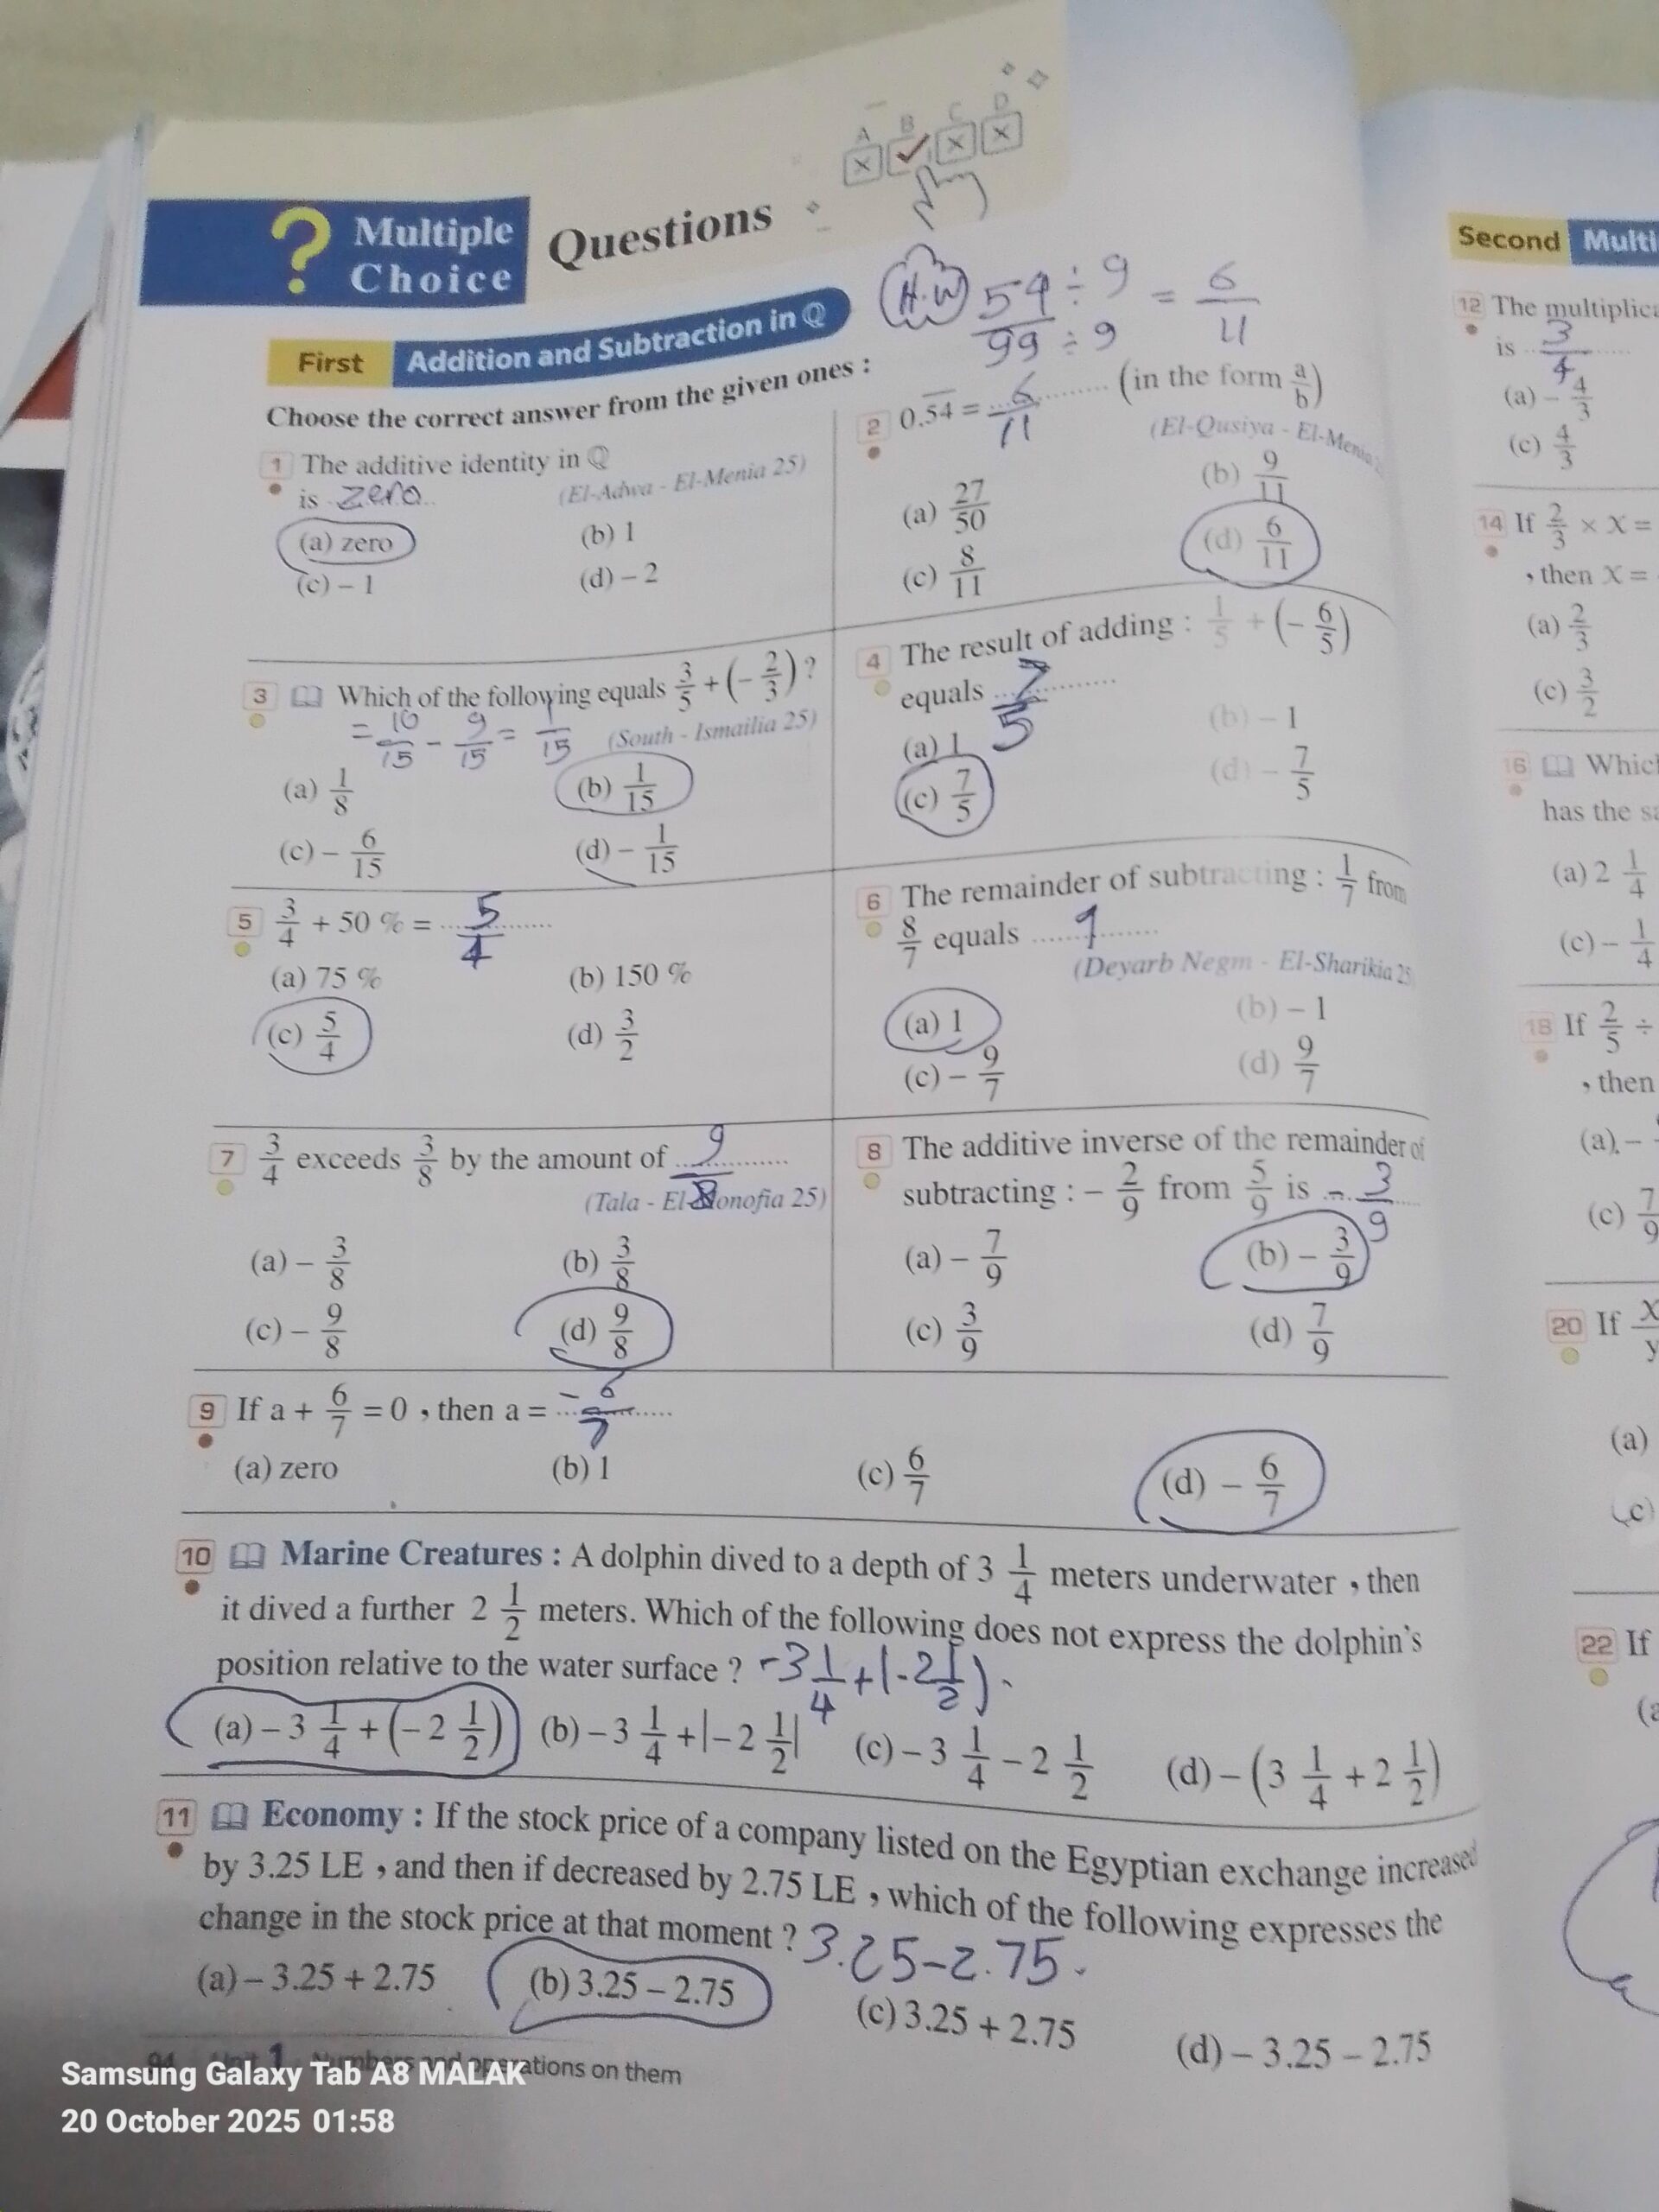 A B C D
? Multiple Choice Questions
H.W 54 ÷ 9 / 99 ÷ 9 = 6/11
First Addition and Subtraction in ℚ
Choose the correct answer from the given ones :
1 The additive identity in ℚ
is zero
(El-Adwa - El-Menia 25)
(a) zero (b) 1
(c) – 1 (d) – 2
2 0.54̅ = 6/11 (in the form a/b)
(El-Qusiya - El-Menia
(a) 27/50 (b) 9/11
(c) 8/11 (d) 6/11
3 Which of the following equals 3/5 + (– 2/3) ?
= 10/15 - 9/15 = 1/15
(South - Ismailia 25)
(a) 1/8 (b) 1/15
(c) – 6/15 (d) – 1/15
4 The result of adding : 1/5 + (– 6/5)
equals 7/5
(a) 1 (b) – 1
(c) 7/5 (d) – 7/5
5 3/4 + 50 % = 5/4
(a) 75 % (b) 150 %
(c) 5/4 (d) 3/2
6 The remainder of subtracting : 1/7 from
8/7 equals 1
(Deyarb Negm - El-Sharikia 25
(a) 1 (b) – 1
(c) – 9/7 (d) 9/7
7 3/4 exceeds 3/8 by the amount of 9/8
(Tala - El-Monofia 25)
(a) – 3/8 (b) 3/8
(c) – 9/8 (d) 9/8
8 The additive inverse of the remainder of
subtracting : – 2/9 from 5/9 is - 3/9
(a) – 7/9 (b) – 3/9
(c) 3/9 (d) 7/9
9 If a + 6/7 = 0 , then a = - 6/7
(a) zero (b) 1 (c) 6/7 (d) – 6/7
10 Marine Creatures : A dolphin dived to a depth of 3 1/4 meters underwater , then
it dived a further 2 1/2 meters. Which of the following does not express the dolphin's
position relative to the water surface ? -3 1/4 + (-2 1/2).
(a) – 3 1/4 + (– 2 1/2) (b) – 3 1/4 + |– 2 1/2| (c) – 3 1/4 – 2 1/2 (d) – (3 1/4 + 2 1/2)
11 Economy : If the stock price of a company listed on the Egyptian exchange increased
by 3.25 LE , and then if decreased by 2.75 LE , which of the following expresses the
change in the stock price at that moment ? 3.25-2.75.
(a) – 3.25 + 2.75 (b) 3.25 – 2.75 (c) 3.25 + 2.75 (d) – 3.25 – 2.75
94 Unit 1 Numbers and operations on them
Second Multi
12 The multiplica
is 3/4
(a) – 4/3
(c) 4/3
14 If 2/3 × X =
, then X =
(a) 2/3
(c) 3/2
16 Which
has the sa
(a) 2 1/4
(c) – 1/4
18 If 2/5 ÷
, then
(a) –
(c) 7/9
20 If X/y
(a)
(c)
22 If
(a
Samsung Galaxy Tab A8 MALAK
20 October 2025 01:58